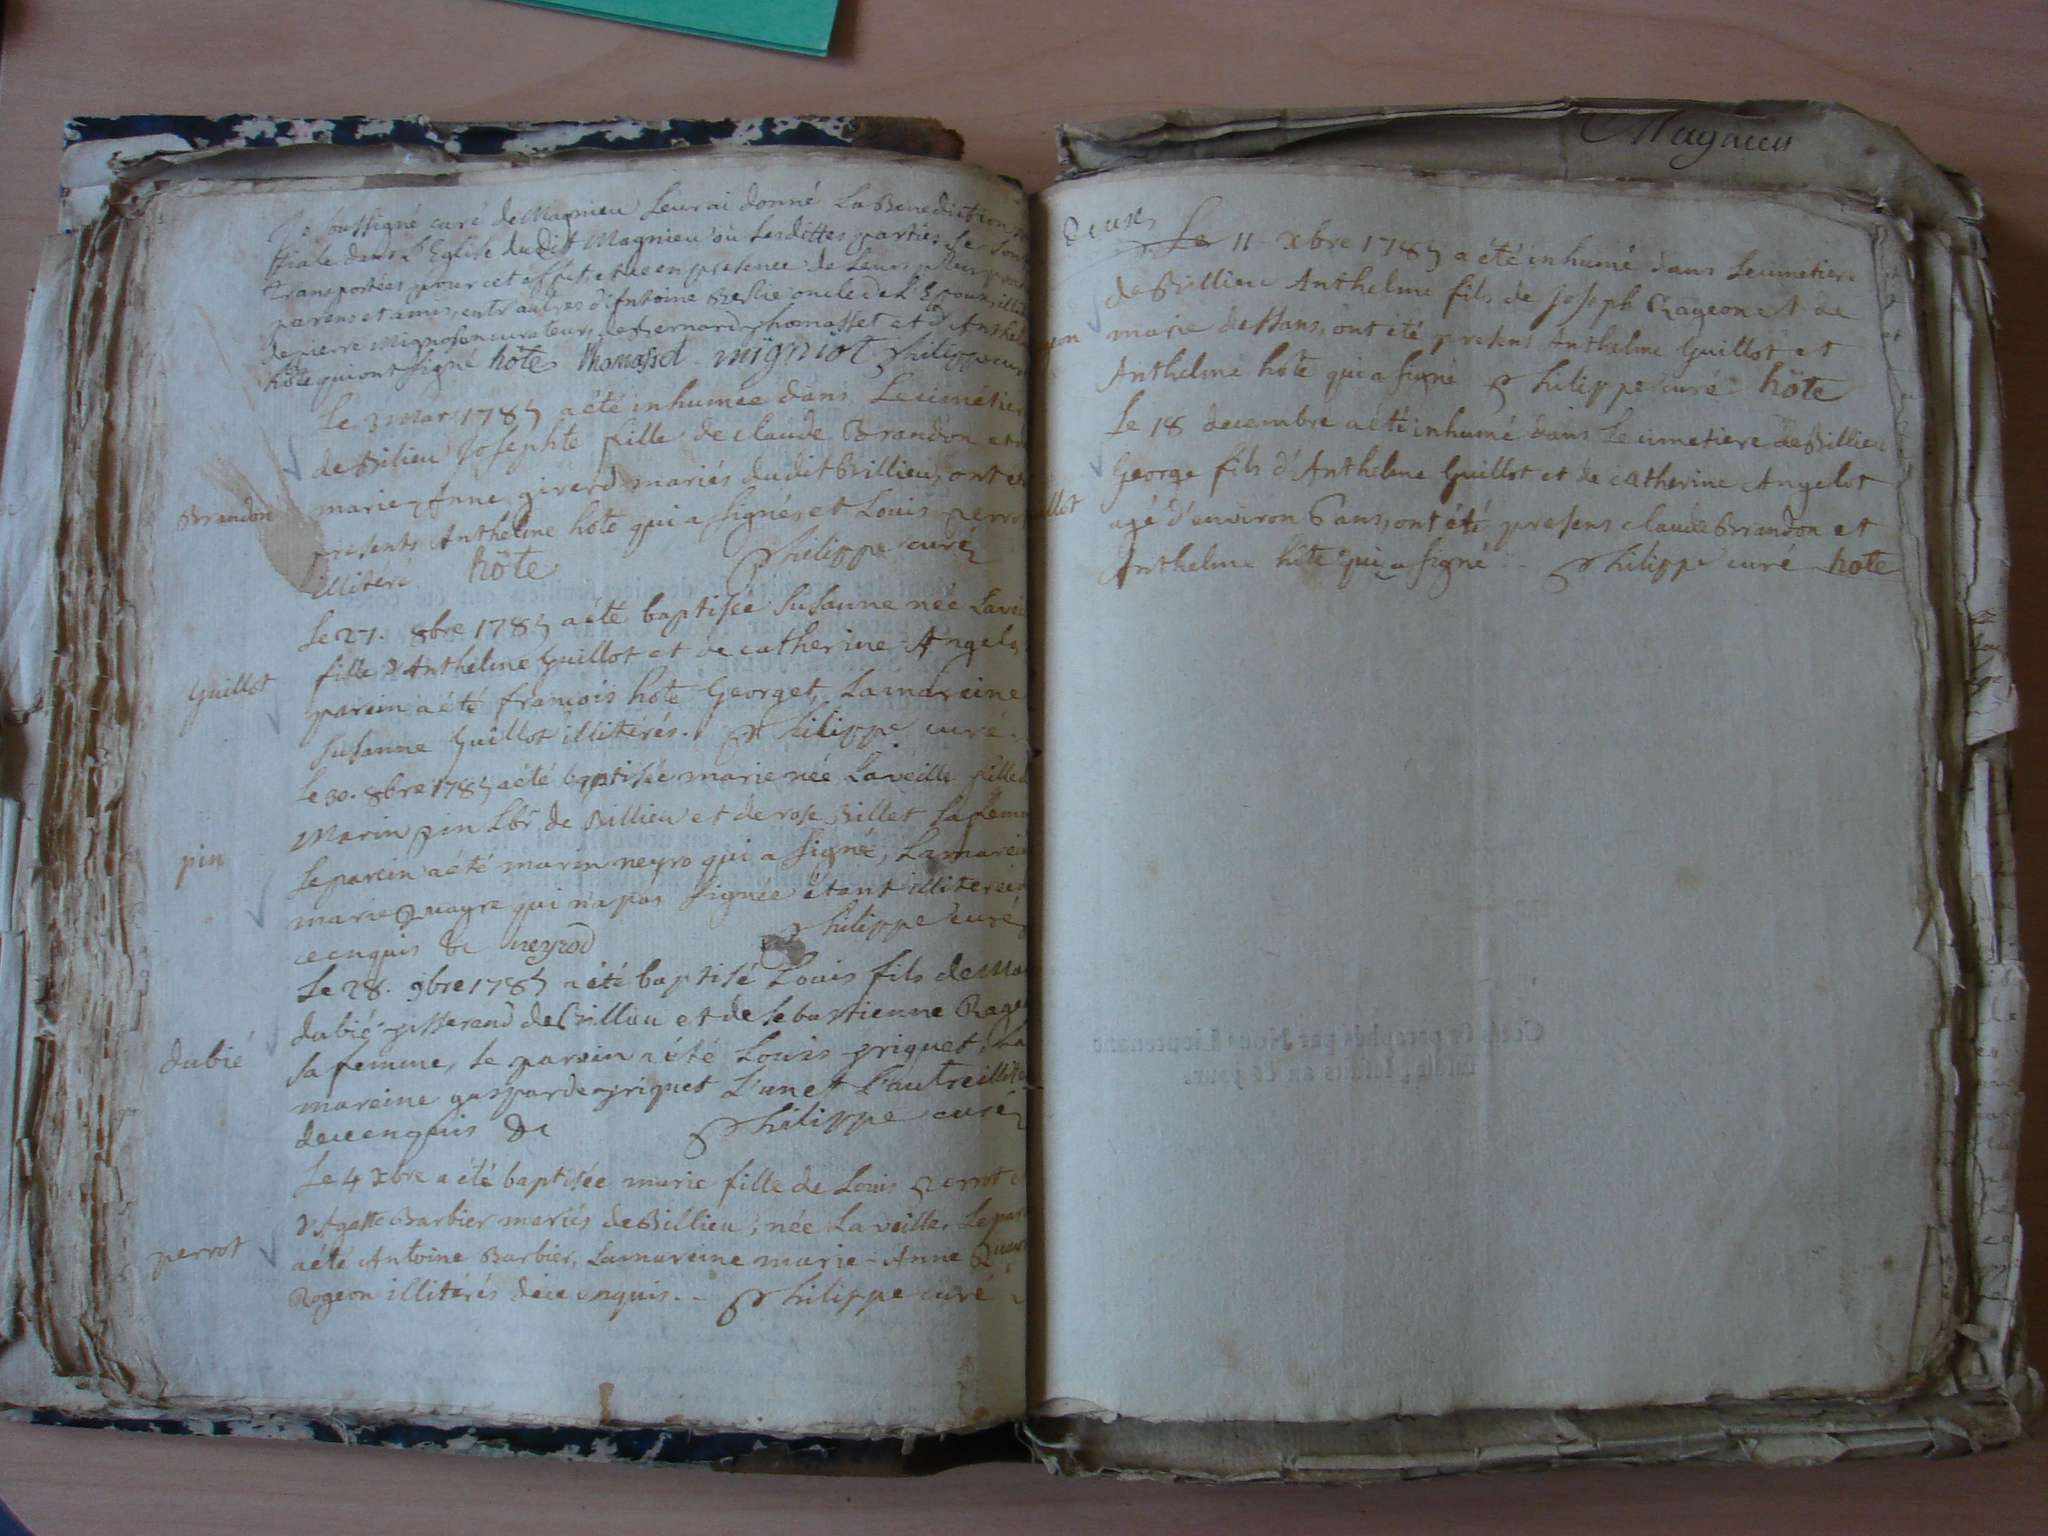 Je soussigné curé de Magnieu leur ai donné La Benediction
tiale dans L'Eglise dudit Magnieu où Lesdittes parties se sont
transportées pour cet effet, et ce en presence de Leurs
parens et amis, entr autres d'Antoine Beslie oncle de L'Epoux
de pierre Mignot son curateur, de Bernard Thomasset et d'Anthel
hôte qui ont signé hôte Thomasset mïgniot Philippe curé
Le 3 mar 1785 a été inhumée dans Le cimétier
de Bilieu Josephte fille de claude Brandon et
Brandon
marie-Anne girerd mariés dudit Billieu, ont ét
présents Anthelme hôte qui a signés et Louis perrot
illitéré hôte Philippe curé
Le 27. 8bre 1785 a été baptisée susanne née La vei
Guillot
fille d'Anthelme Guillot et de catherine Angelo
parein a été francois hôte Georget, La mareine
susanne Guillot illitérés. Philippe curé
Le 30. 8bre 1785 a été baptisée marie née La veille fille d
Marin pin Lbr de Billieu et de rose Billet sa fem
pin
Le parein a été marin neyro qui a signé, La marein
marie Quayre qui n'a pas signée étant illiterée
ce enquis &c neyrod Philippe curé
Le 28. 9bre 1785 a été baptisé Louis fils de Ma
dubié tisserand de Billieu et de sebastienne Rage
dubié
sa femme, Le parein a été Louis priquet, La
mareine gasparde priquet L'un et L'autre illité
de ce enquis &c Philippe curé
Le 4 xbre a été baptisée marie fille de Louis perrot et
d'Agatte Barbier mariés de Billieu, née La veille, Le par
perrot
a été Antoine Barbier, La mareine marie-Anne
Rogeon illitérés de ce enquis. Philippe curé
Magnieu
deux
Le 11 xbre 1785 a été inhumé dans Le cimetiere
de Billieu Anthelme fils de Joseph Rageon et de
marie dessans, ont été presens Anthelme Guillot et
Anthelme hôte qui a signé Philippe curé hôte
Le 18 decembre a été inhumé dans Le cimetiere de Billieu
George fils d'Anthelme Guillot et de catherine Angelot
llot
agé d'environ 6 ans, ont été presens claude Brandon et
Anthelme hôte qui a signé Philippe curé hote